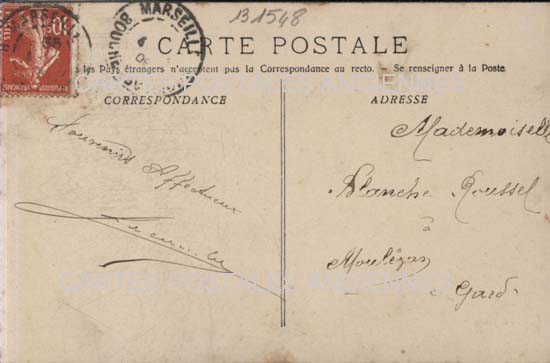 131548
MARSEILLE
BOUCHES
10c
CARTE POSTALE
les Pays étrangers n'acceptent pas la Correspondance au recto. — Se renseigner à la Poste.
CORRESPONDANCE
Souvenirs Affectueux
ADRESSE
Mademoiselle
Blanche Roussel
à
Moulézan
Gard
CARTES POSTALES ANCIENNES
CARTES POSTALES ANCIENNES